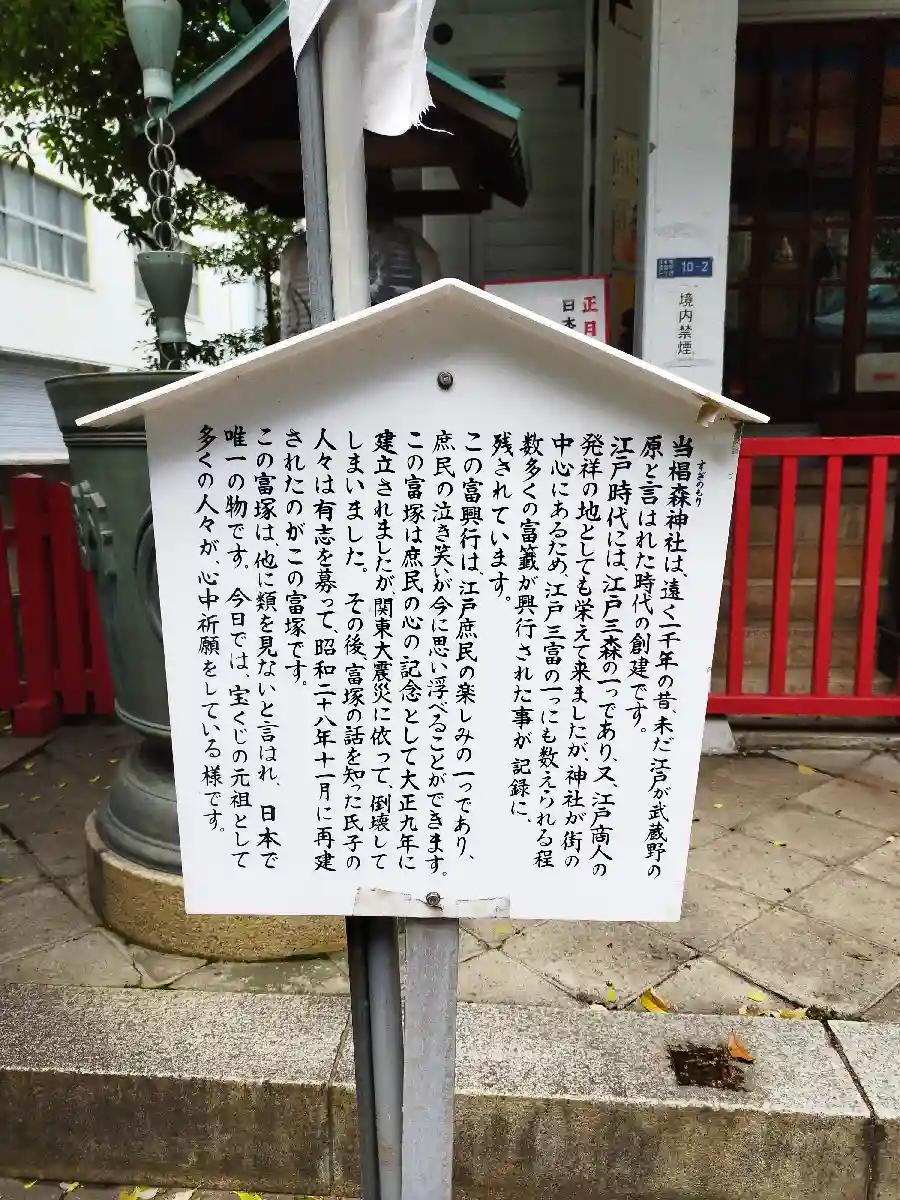 当椙森神社は、遠く一千年の昔、未だ江戸が武蔵野の
すぎのもり
原と言はれた時代の創建です。
江戸時代には、江戸三森の一つであり、又、江戸商人の
発祥の地としても栄えて来ましたが、神社が街の
中心にあるため、江戸三富の一つにも数えられる程
数多くの富籤が興行された事が記録に、
残されています。
この富興行は、江戸庶民の楽しみの一つであり、
庶民の泣き笑いが今に思い浮べることができます。
この富塚は庶民の心の記念として大正九年に
建立されましたが関東大震災に依って、倒壊して
しまいました。その後、富塚の話を知った氏子の
人々は有志を募って、昭和二十八年十一月に再建
されたのがこの富塚です。
この富塚は、他に類を見ないと言はれ、日本で
唯一の物です。今日では、宝くじの元祖として
多くの人々が、心中祈願をしている様です。
正月
日本
10-2
境内禁煙